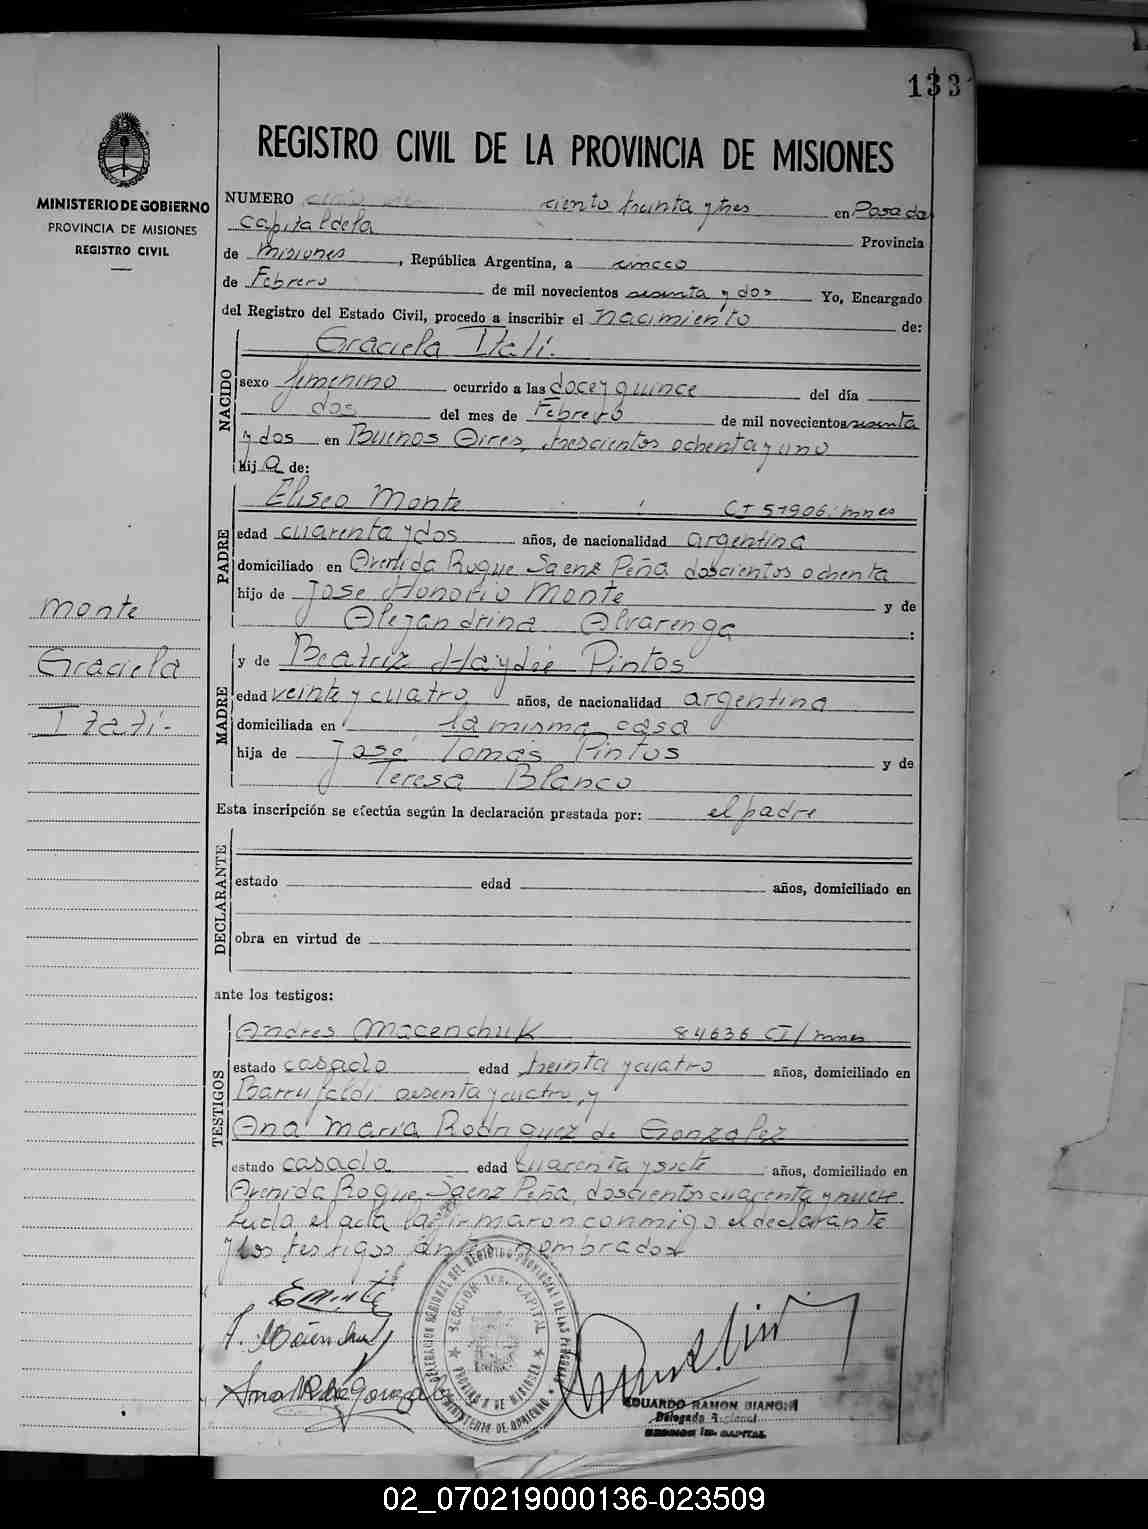 133
REGISTRO CIVIL DE LA PROVINCIA DE MISIONES
MINISTERIO DE GOBIERNO
PROVINCIA DE MISIONES
REGISTRO CIVIL
NUMERO ciento treinta y tres en Posadas
Capital de la Provincia
de Misiones, República Argentina, a cinco
de Febrero de mil novecientos sesenta y dos Yo, Encargado
del Registro del Estado Civil, procedo a inscribir el nacimiento de:
Graciela Itatí.
NACIDO
sexo femenino ocurrido a las doce y quince del día
dos del mes de Febrero de mil novecientos sesenta
y dos en Buenos Aires, trescientos ochenta y uno
hija de:
Eliseo Monte CI 51906/mnes
PADRE
edad cuarenta y dos años, de nacionalidad argentina
domiciliado en Avenida Roque Saenz Peña doscientos ochenta
hijo de Jose Honorio Monte y de
Alejandrina Alvarenga :
Monte
Graciela
Itatí-
y de Beatriz Haydée Pintos
MADRE
edad veinte y cuatro años, de nacionalidad argentina
domiciliada en la misma casa
hija de José Tomás Pintos y de
Teresa Blanco
Esta inscripción se efectúa según la declaración prestada por: el padre
DECLARANTE
estado edad años, domiciliado en
obra en virtud de
ante los testigos:
TESTIGOS
Andres Macenchuk 84636 CI/mnes
estado casado edad treinta y cuatro años, domiciliado en
Barrufaldi sesenta y cuatro, y
Ana María Rodriguez de Gonzalez
estado casada edad cuarenta y siete años, domiciliado en
Avenida Roque Saenz Peña, doscientos cuarenta y nueve.
Leida el acta la firmaron conmigo el declarante
y los testigos antes nombrados
SECCION 1ra. CAPITAL
PROVINCIA DE MISIONES
MINISTERIO DE GOBIERNO
EDUARDO RAMON BIANCHI
Delegado Regional
SECCION 1ra. CAPITAL
02_070219000136-023509